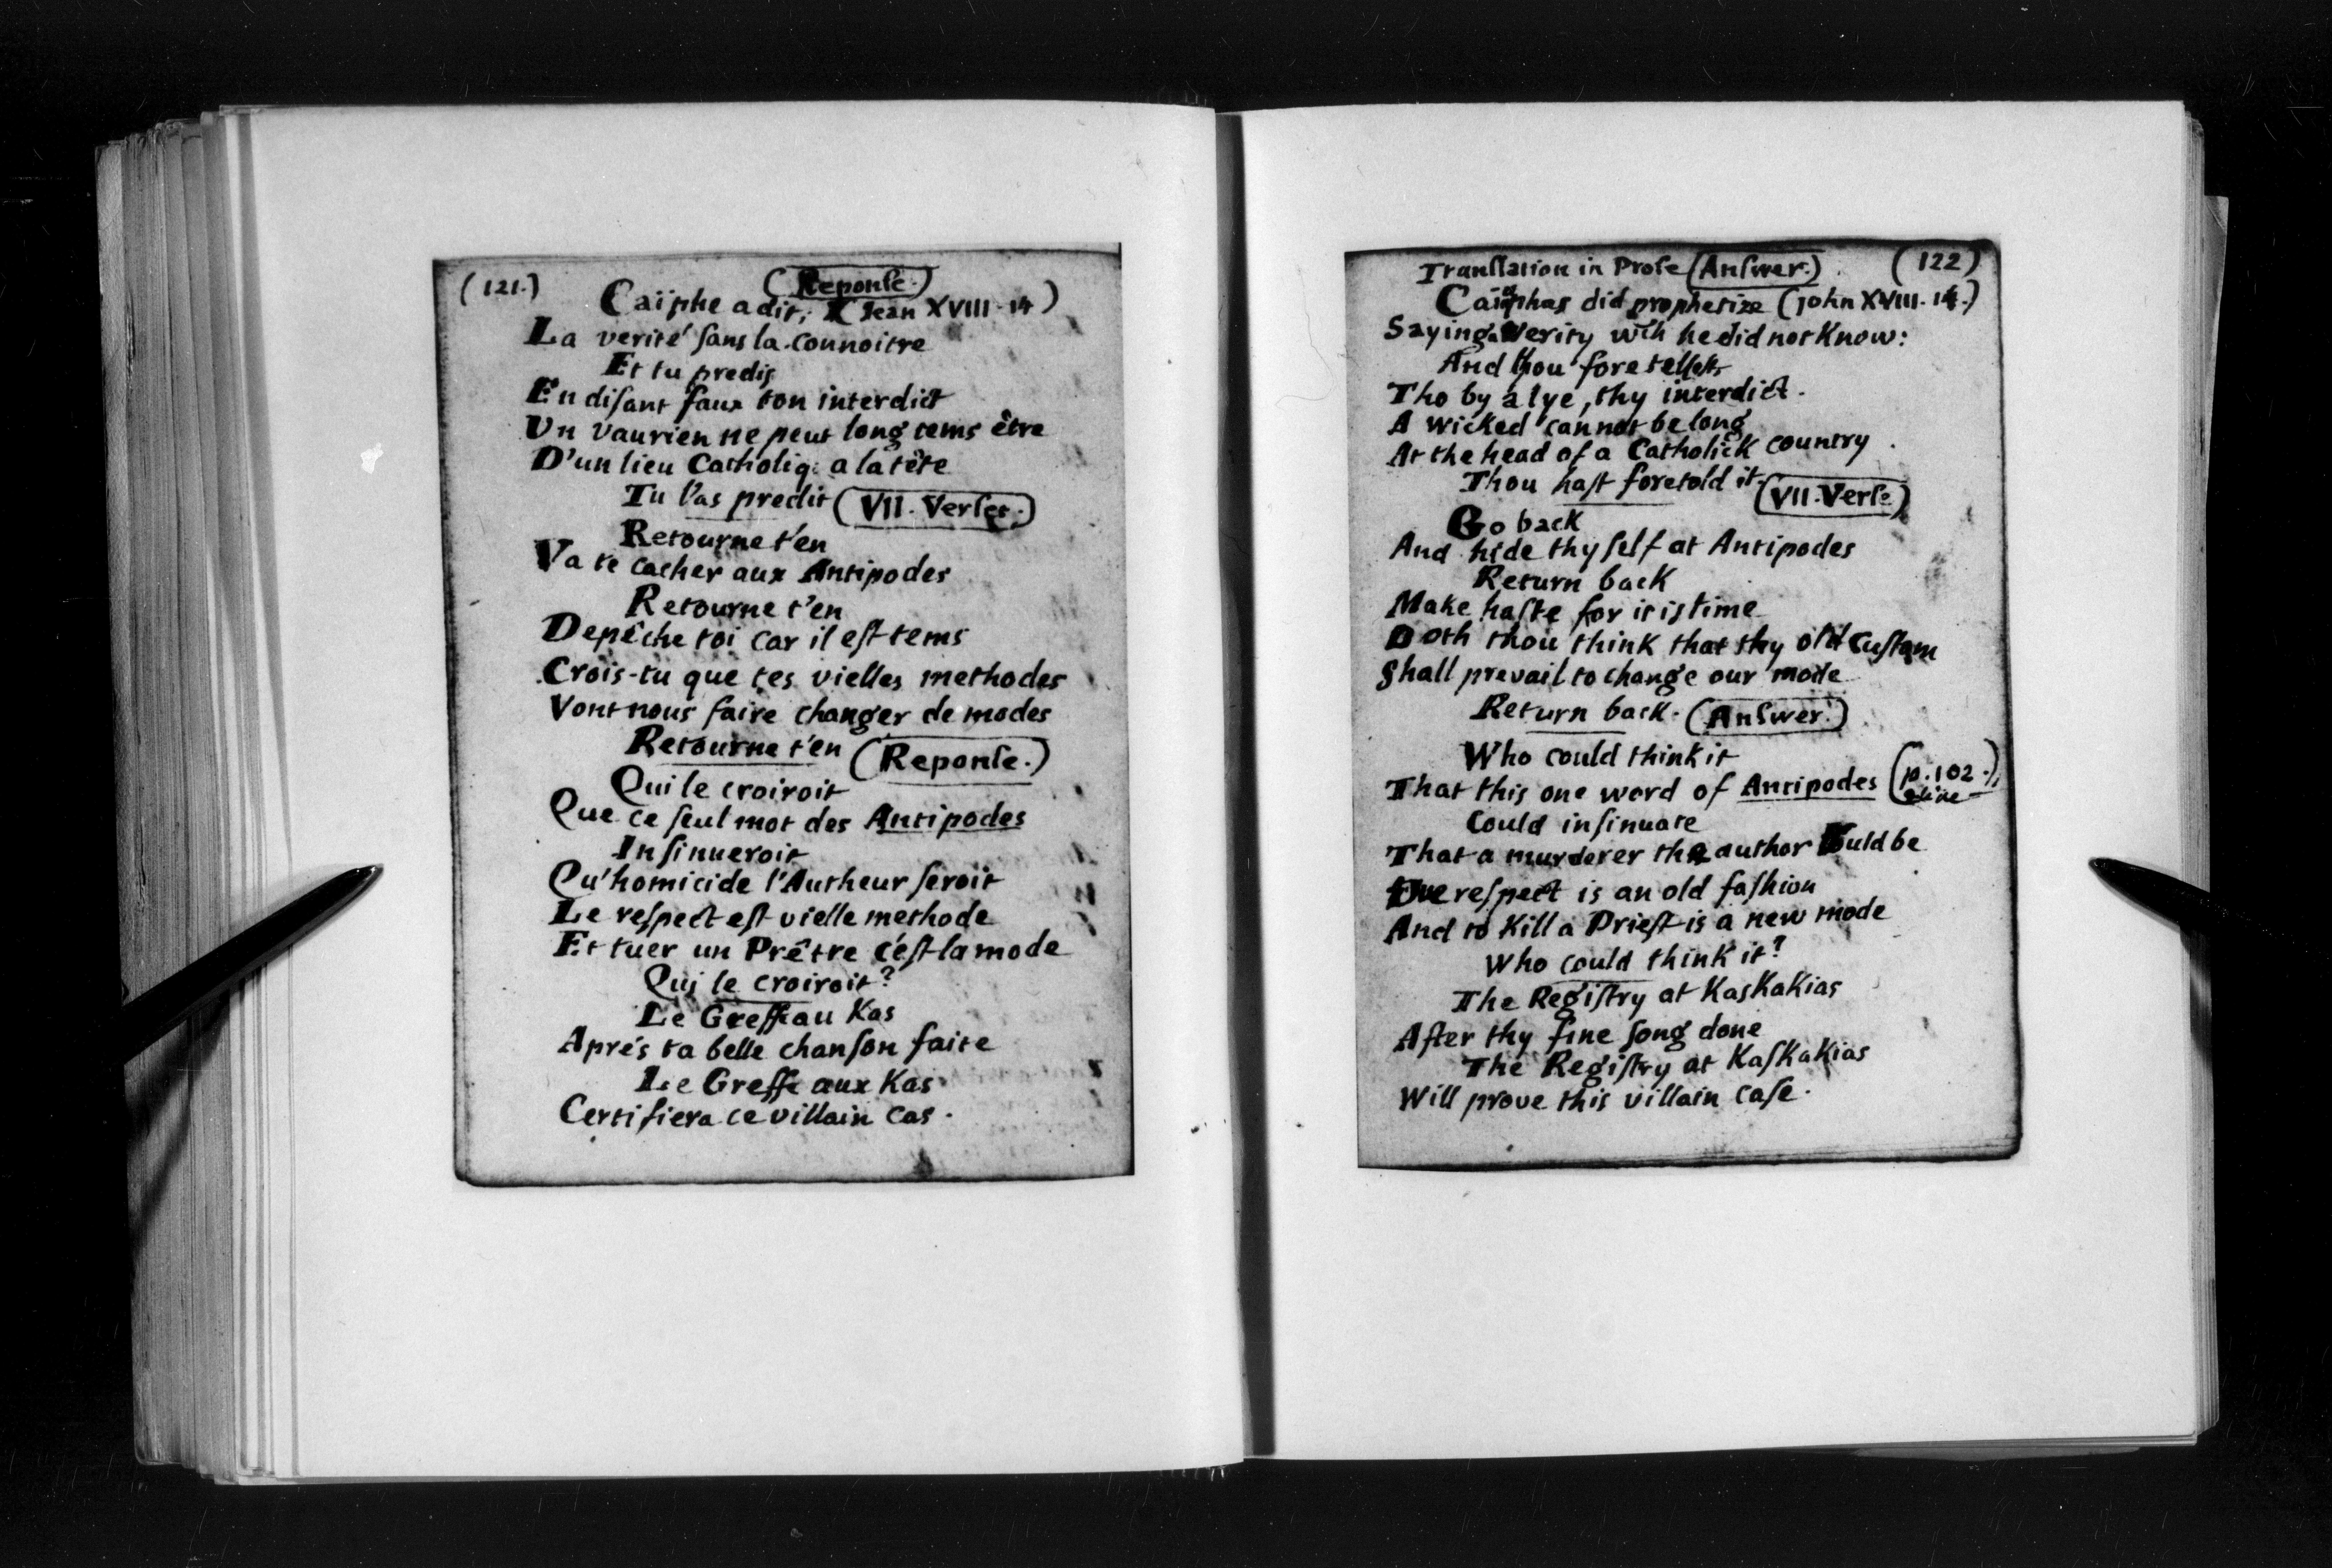 (121.) (Reponse.)
Caïphe a dit, (Jean XVIII-14)
La verité sans la connoitre
Et tu predis
En disant faux ton interdict
Un vaurien ne peut long tems être
D'un lieu Catholiq: a la tête
Tu l'as predit (VII. Verset.)
Retourne t'en
Va te cacher aux Antipodes
Retourne t'en
Depêche toi car il est tems
Crois-tu que tes vielles methodes
Vont nous faire changer de modes
Retourne t'en (Reponse.)
Qui le croiroit
Que ce seul mot des Antipodes
Insinueroit
Qu'homicide l'Autheur seroit
Le respect est vielle methode
Et tuer un Prêtre c'est la mode
Qui le croiroit?
Le Greffe au Kas
Aprés ta belle chanson faite
Le Greffe aux Kas
Certifiera ce villain cas.
Translation in Prose (Answer.) (122)
Caiphas did prophetize (John XVIII-14.)
Saying a Verity wch he did not Know:
And thou foretellest
Tho by a lye, thy interdict.
A wicked cannot be long
At the head of a Catholick country
Thou hast foretold it (VII. Verse.)
Go back
And hide thy self at Antipodes
Return back
Make haste for it is time
Doth thou think that thy old Custom
Shall prevail to change our mode
Return back. (Answer.)
Who could think it
That this one word of Antipodes (p.102.)
Could insinuate
That a murderer the author would be
respect is an old fashion
And to Kill a Priest is a new mode
Who could think it?
The Registry at Kaskakias
After thy fine song done
The Registry at Kaskakias
Will prove this villain case.